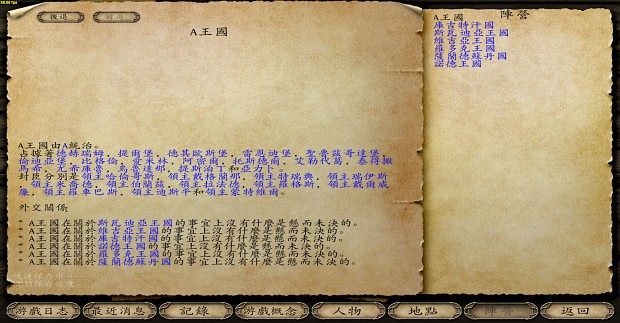 60.00 fps
後退
A王國
A王國由A統治。
占據著德赫瑞姆, 提爾堡, 德其歐斯堡, 雷恩迪堡, 聖魯茲哥達堡,
倫迪亞堡, 比格倫, 愛米林, 阿密爾, 托斯德爾, 艾勒代葛, 泰得撒
馬希, 尤希庫魯, 烏魯達那, 提斯泊丁和亞力卡。
封臣分別是領主哈倫哥斯, 領主戴格蘭那, 領主特瑞典, 領主瑞伊斯
, 領主米喬德, 領主伯蘭茲, 領主拉法德, 領主羅格斯, 領主戴爾威
廉, 領主羅車巴斯, 領主迪斯平和領主蒙特維爾。
外交關係:
A王國在關於斯瓦迪亞王國的事宜上沒有什麼是懸而未決的。
A王國在關於維吉亞王國的事宜上沒有什麼是懸而未決的。
A王國在關於庫吉特汗國的事宜上沒有什麼是懸而未決的。
A王國在關於諾德王國的事宜上沒有什麼是懸而未決的。
A王國在關於薩蘭德蘇丹國的事宜上沒有什麼是懸而未決的。
陣營
A王國
庫吉特汗國
斯瓦迪亞王國
維吉亞王國
羅多克王國
薩蘭德蘇丹國
諾德王國
游戲日志
最近消息
記錄
游戲概念
人物
地點
陣營
返回